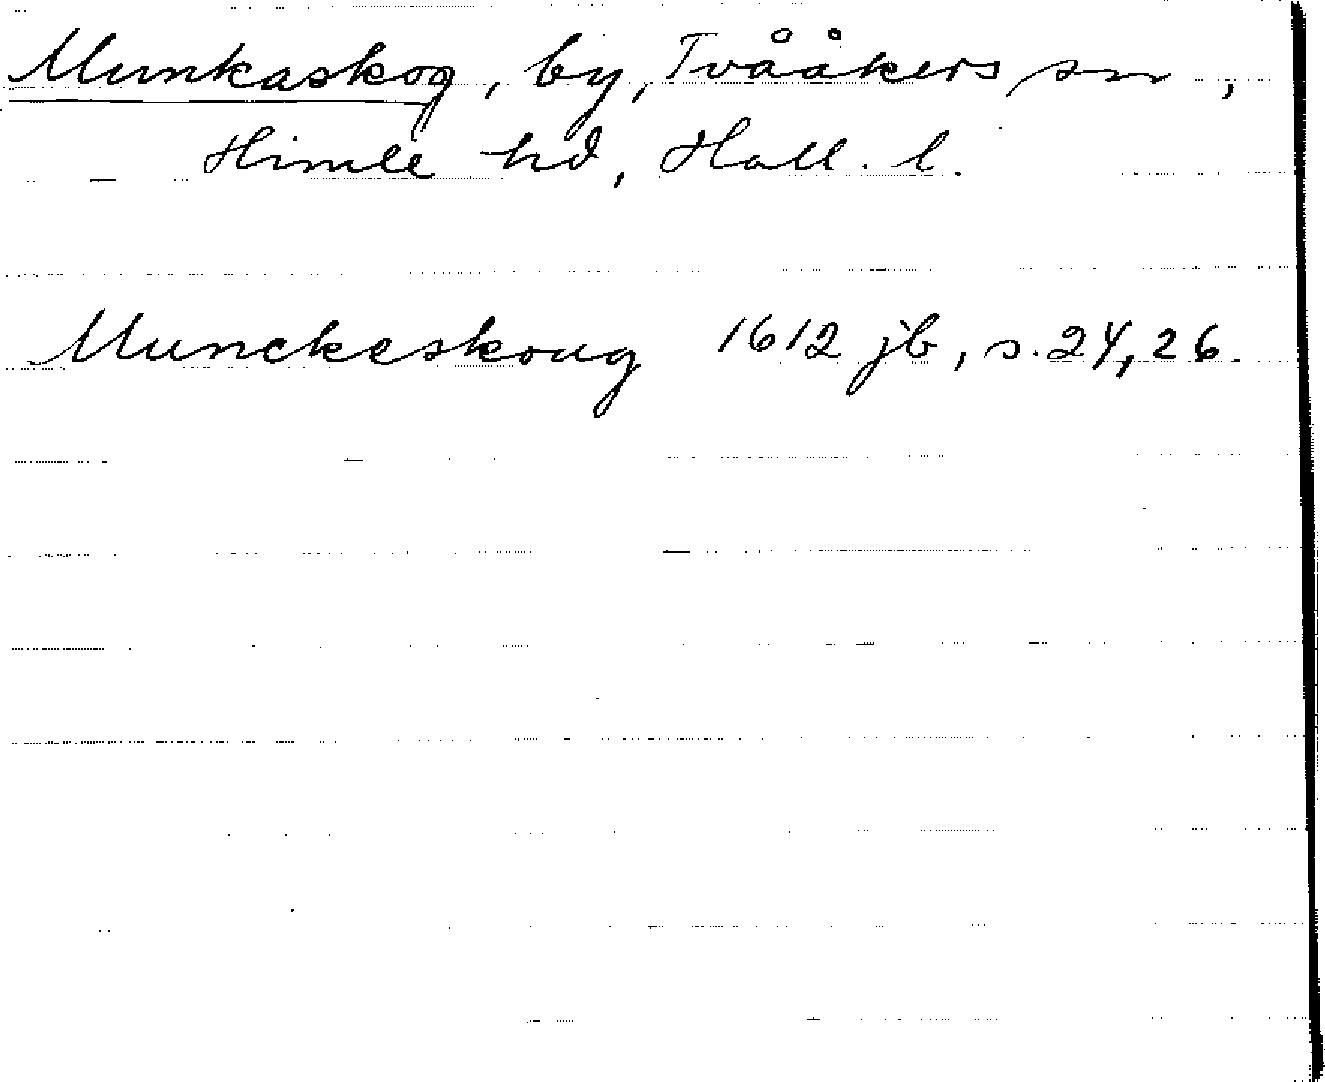 Munkaskog, by, Tvååkers sn,
Himle hd, Hall. l.
Munckeskoug 1612 jb, s. 24, 26.